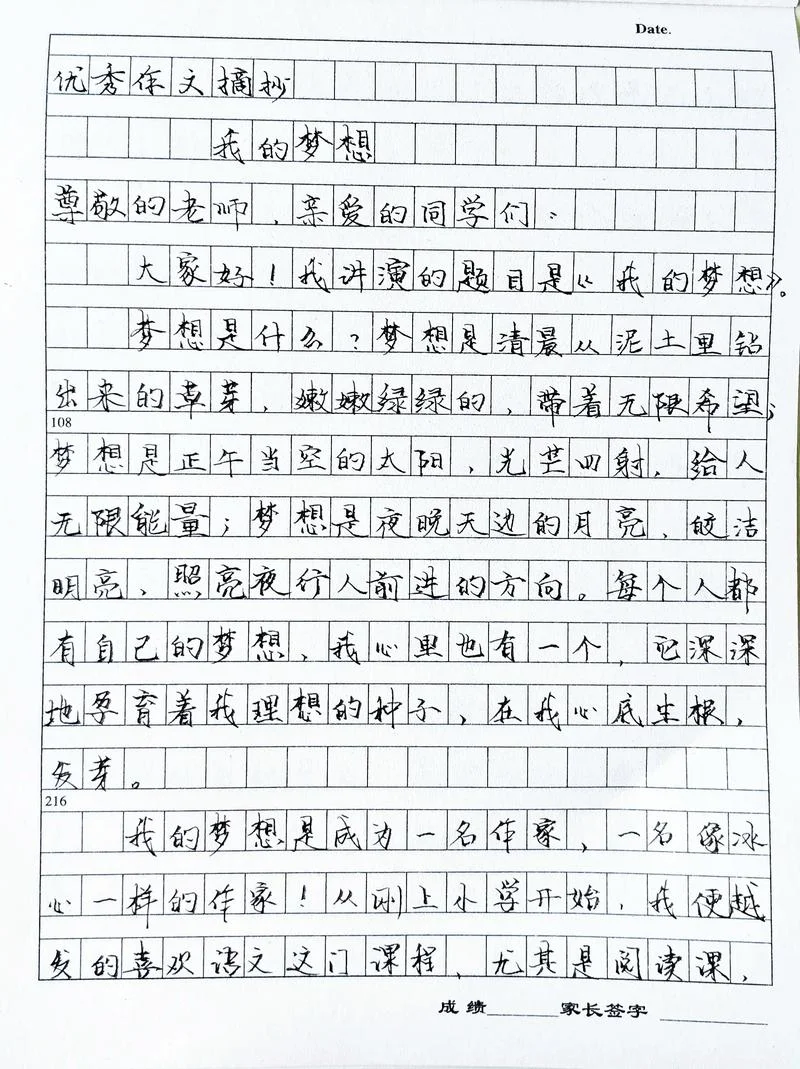 Date.
优秀作文摘抄
我的梦想
尊敬的老师，亲爱的同学们：
大家好！我讲演的题目是《我的梦想》。
梦想是什么？梦想是清晨从泥土里钻
出来的草芽，嫩嫩绿绿的，带着无限希望；
108
梦想是正午当空的太阳，光芒四射，给人
无限能量；梦想是夜晚天边的月亮，皎洁
明亮，照亮夜行人前进的方向。每个人都
有自己的梦想，我心里也有一个，它深深
地孕育着我理想的种子，在我心底生根，
发芽。
216
我的梦想是成为一名作家，一名像冰
心一样的作家！从刚上小学开始，我便越
发的喜欢语文这门课程，尤其是阅读课，
成绩______家长签字________